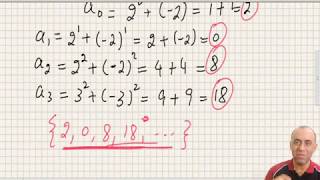 a₀ = 2⁰ + (-2)⁰ = 1 + 1 = 2
a₁ = 2¹ + (-2)¹ = 2 + (-2) = 0
a₂ = 2² + (-2)² = 4 + 4 = 8
a₃ = 3² + (-3)² = 9 + 9 = 18
{2, 0, 8, 18, ...}